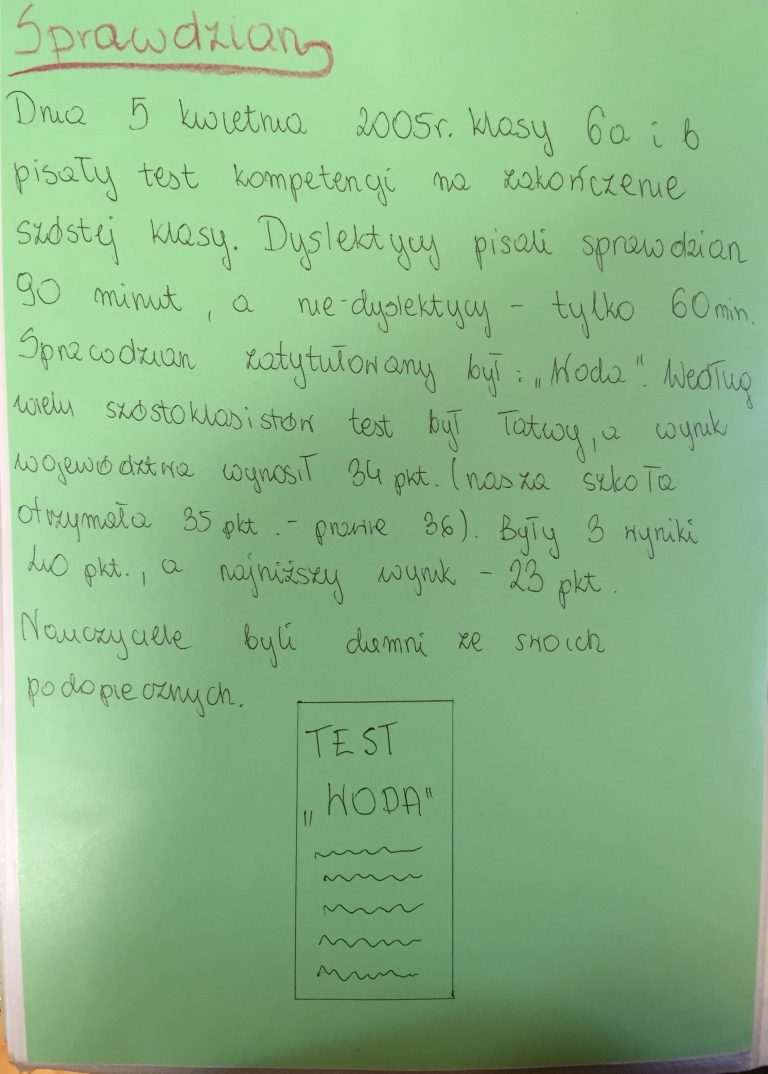 Sprawdzian
Dnia 5 kwietnia 2005r. klasy 6a i b
pisały test kompetencji na zakończenie
szóstej klasy. Dyslektycy pisali sprawdzian
90 minut, a nie-dyslektycy - tylko 60 min.
Sprawdzian zatytułowany był: „Woda". Według
wielu szóstoklasistów test był łatwy, a wynik
województwa wynosił 34 pkt. (nasza szkoła
otrzymała 35 pkt. - prawie 36). Były 3 wyniki
40 pkt., a najniższy wynik - 23 pkt.
Nauczyciele byli dumni ze swoich
podopiecznych.
TEST
„WODA"